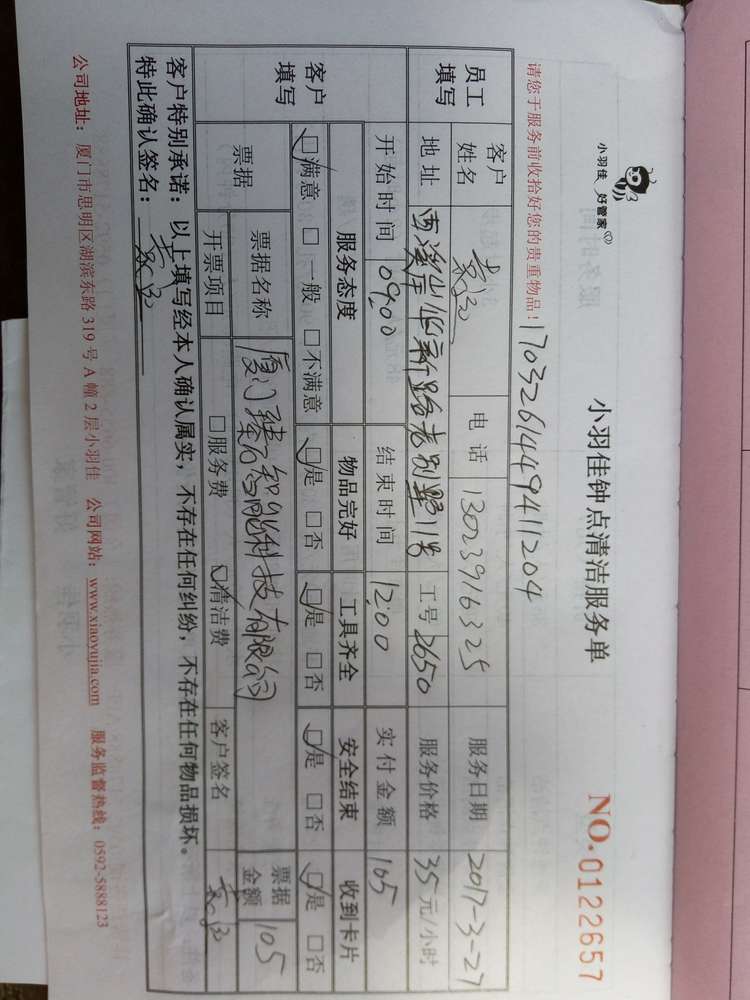 小羽佳 好管家
小羽佳钟点清洁服务单
NO.0122657
请您于服务前收拾好您的贵重物品！1703261449411204
员工填写
客户姓名 电话 13023916325 服务日期 2017-3-27
地址 老别墅11号 工号 2650 服务价格 35元/小时
开始时间 09:00 结束时间 12:00 实付金额 105
客户填写
服务态度 物品完好 工具齐全 安全结束 收到卡片
☑满意 □一般 □不满意 ☑是 □否 ☑是 □否 ☑是 □否 ☑是 □否
票据 票据名称 厦门 科技有限公司 票据金额 105
开票项目 □服务费 ☑清洁费 客户签名
客户特别承诺：以上填写经本人确认属实，不存在任何纠纷，不存在任何物品损坏。
特此确认签名：
公司地址：厦门市思明区湖滨东路319号A幢2层小羽佳 公司网站：www.xiaoyujia.com 服务监督热线：0592-5888123